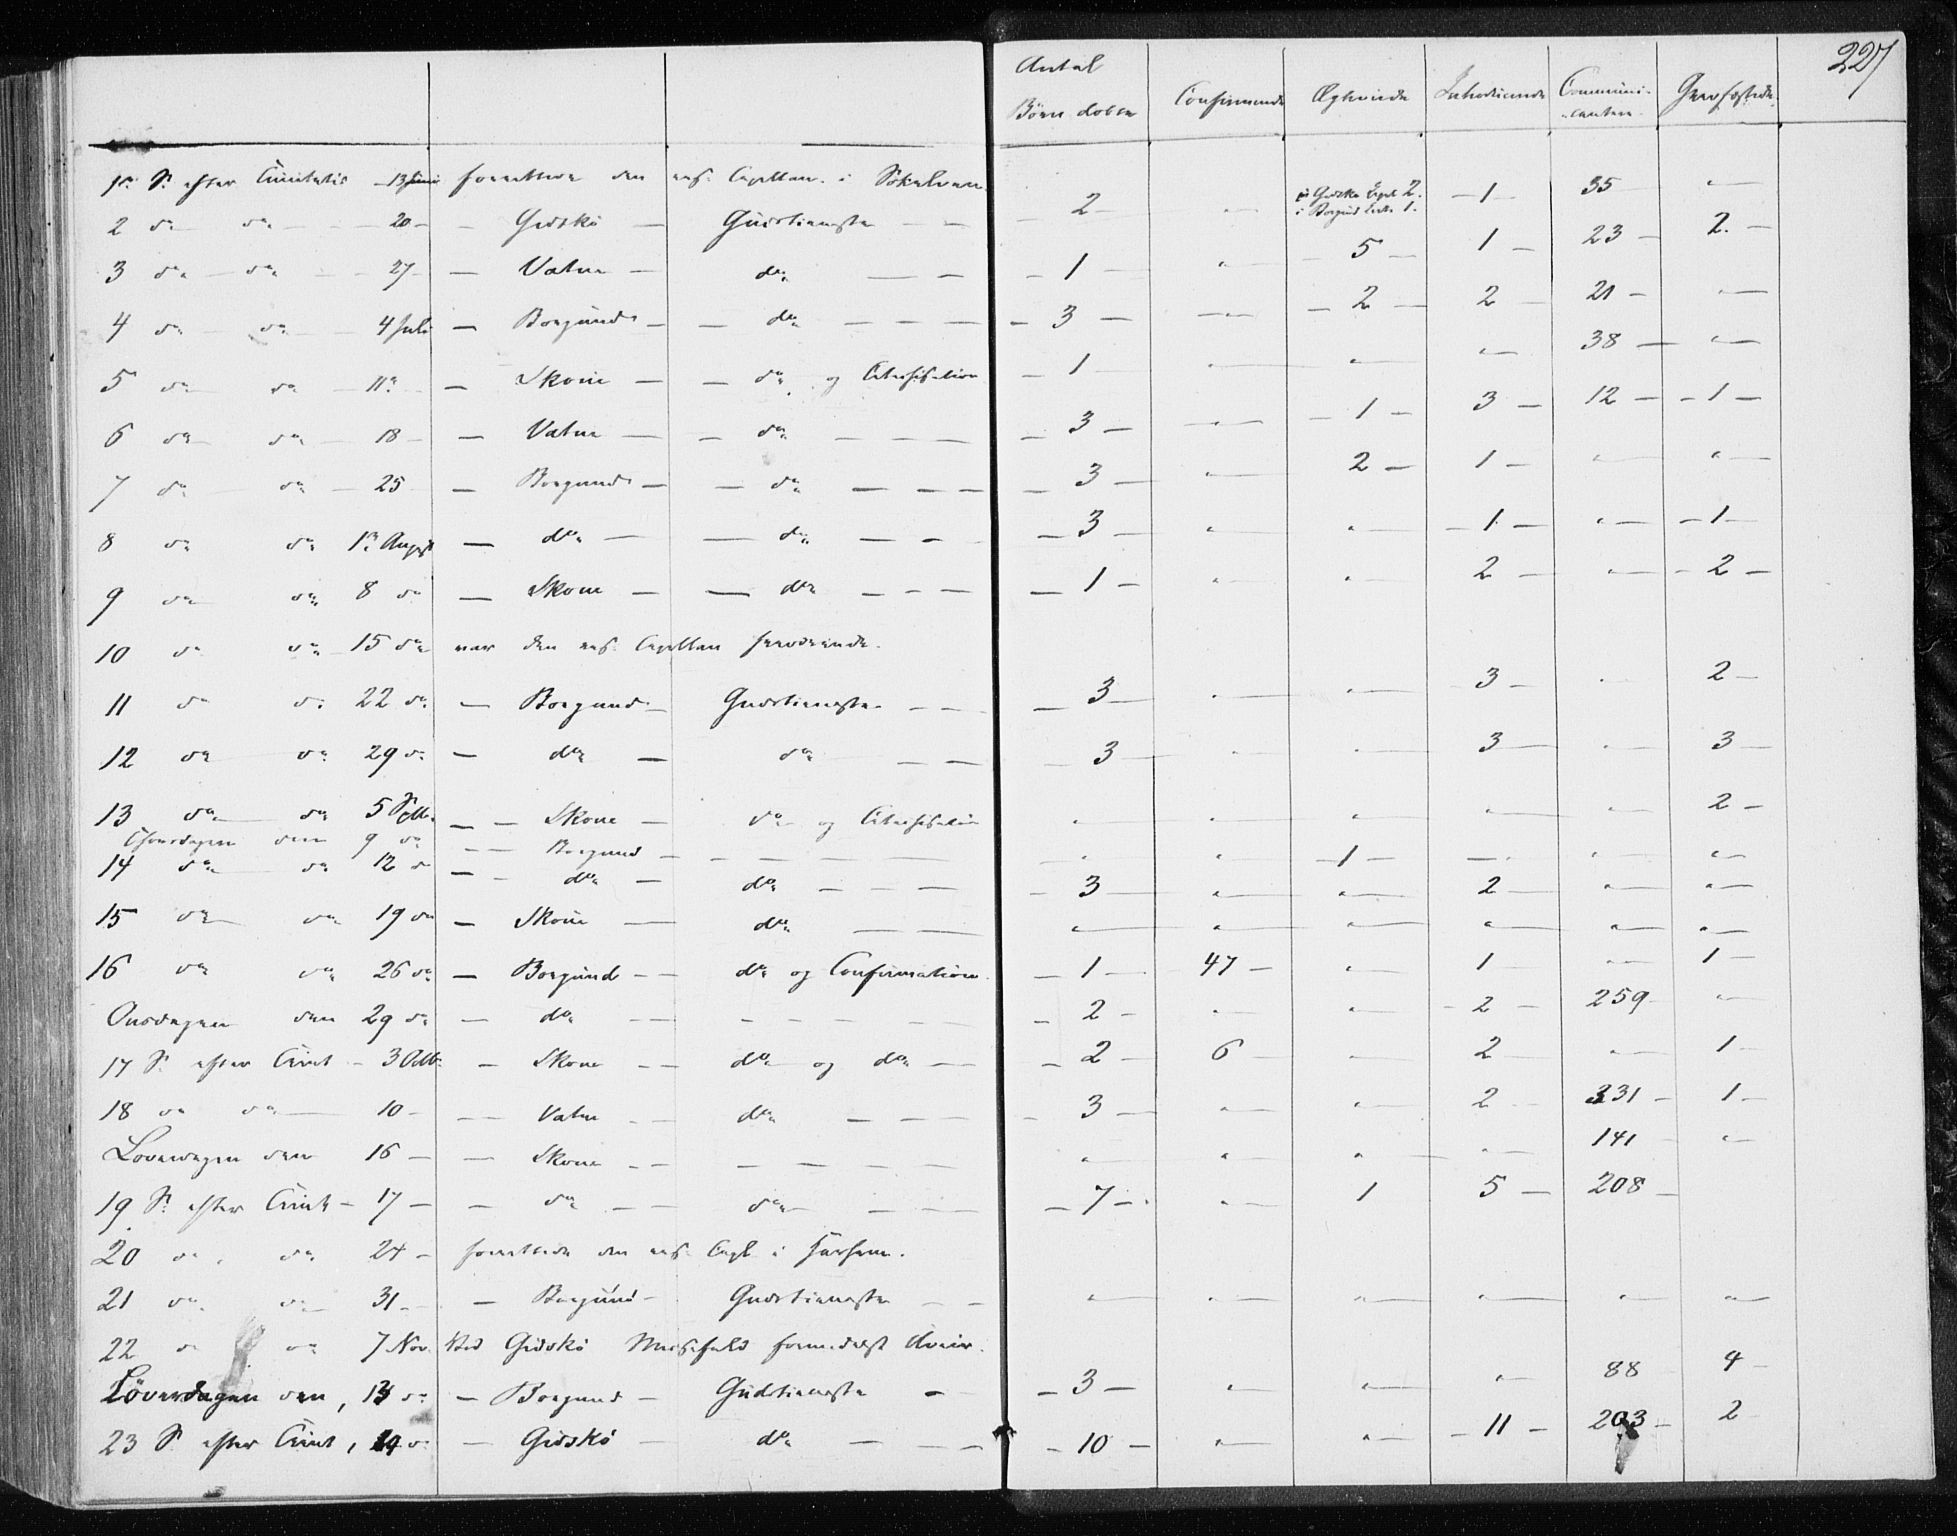 227
Antal Börn döbte | Confirmerede | Ægteviede | Introducerede | Communicantere | Gravfæstede
1ste S. efter Trinitatis 13 Juni forrettede den res. Capellan i Sökelven
2 do do 20 Gidskö Gudstieneste 2 " i Gidskö 2. i Borgund 1. 1 35 "
3 do do 27 Vatne do 1 " 5 1 23 2
4 do do 4 Juli Borgund do 3 " 2 2 21 "
5 do do 11 Skoue do og Catechisation 1 " " " 38 "
6 do do 18 Vatne do 3 " 1 3 12 1
7 do do 25 Borgund do 3 " 2 1 " "
8 do do 1 August do do 3 " " 1 " 1
9 do do 8 do Skoue do 1 " " 2 " 2
10 do do 15 do var den res. Capellan fraværende.
11 do do 22 do Borgund Gudstieneste 3 " " 3 " 2
12 do do 29 do do do 3 " " 3 " 3
13 do do 5 Septbr. Skoue do og Catechisation " " " " " 2
Thorsdagen den 9 do Borgund " " 1 " " "
14 do do 12 do do do 3 " " 2 " "
15 do do 19 do Skoue do " " " " " "
16 do do 26 do Borgund do og Confirmation 1 47 " 1 " 1
Onsdagen den 29 do do 2 " " 2 259 "
17 S. efter Trint 3 Octbr. Skoue do og do 2 6 " 2 " 1
18 do do 10 Vatne do 3 " " 2 331 1
Loverdagen den 16 Skoue " " " " 141 "
19 S. efter Trint 17 do do 7 " 1 5 208
20 do do 24 forrettede den res. Capl. i
21 do do 31 Borgund Gudstieneste " " " " " "
22 do do 7 Nov. Ved Gidskö Messefald formedelst Uveir.
Löverdagen den 13 do Borgund Gudstieneste 3 " " " 88 4
23 S. efter Trint, 14 do Gidskö do 10 " " 11 203 2